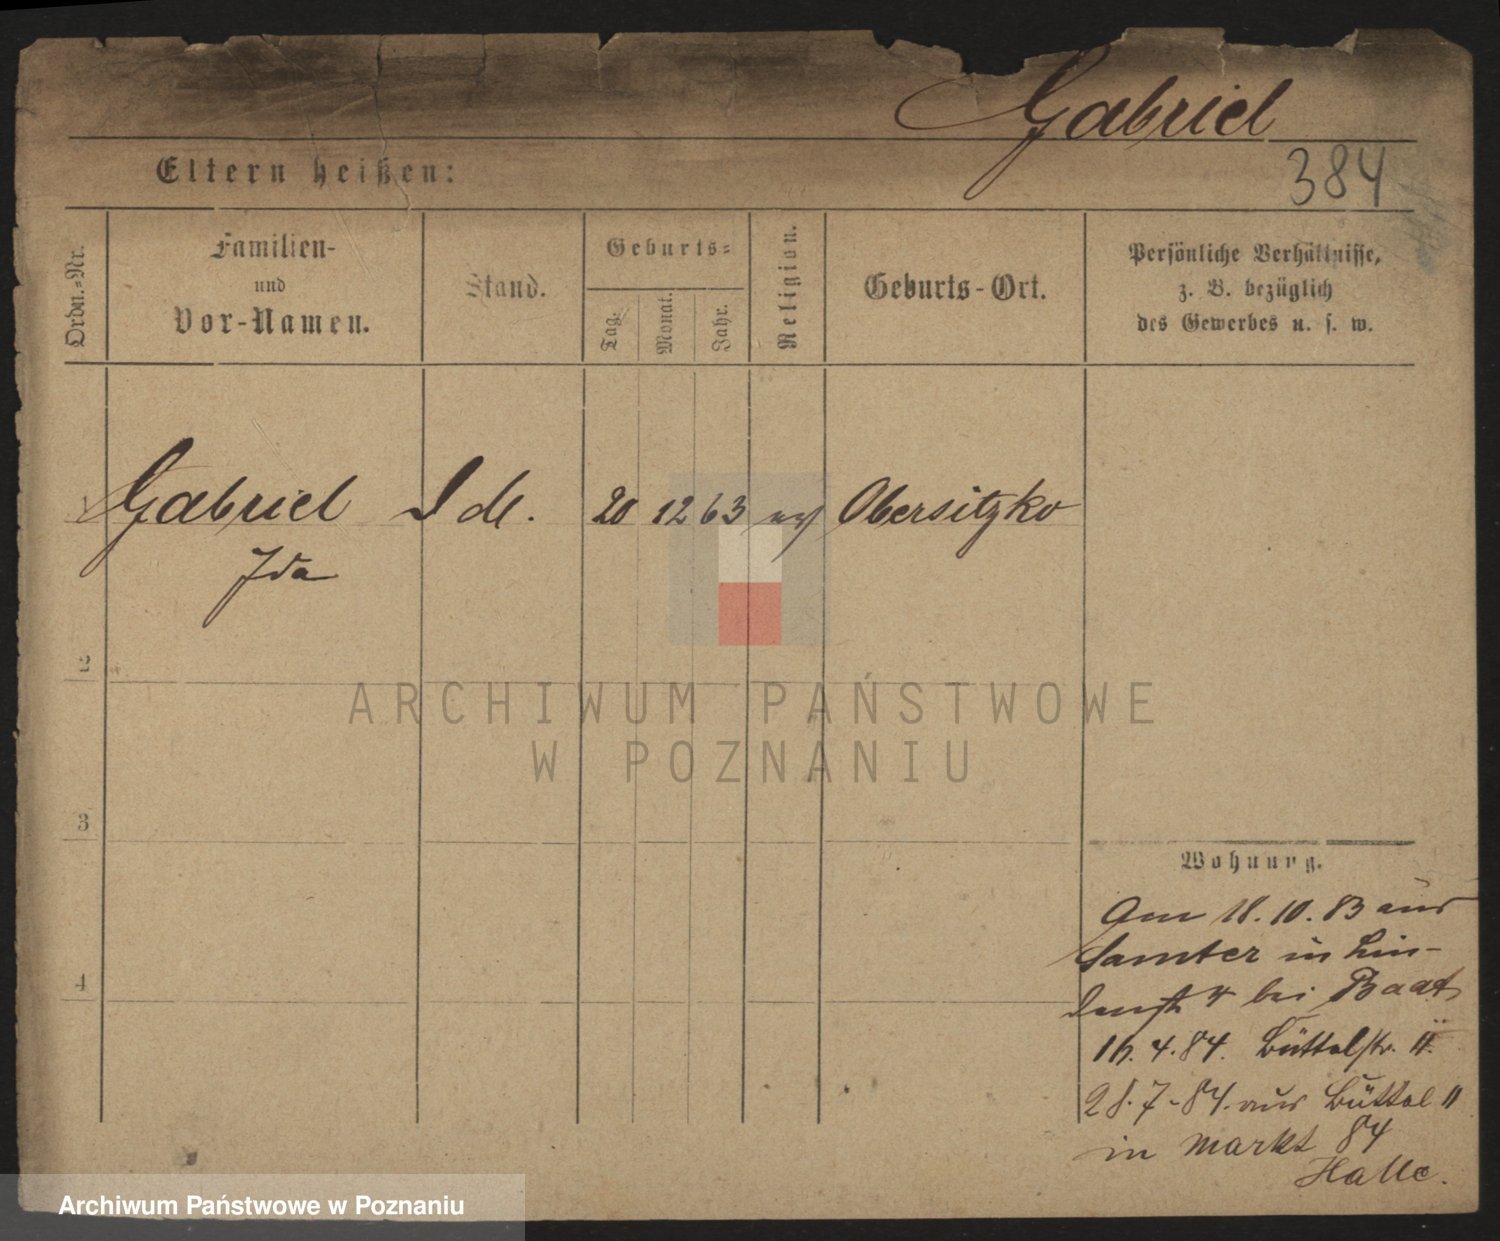 Gabriel
Eltern heißen:
384
Ordn.=Nr.
Familien-
und
Vor-Namen.
Stand.
Geburts=
Tag.
Monat.
Jahr.
Religion.
Geburts-Ort.
Persönliche Verhältnisse,
z. B. bezüglich
des Gewerbes u. s. w.
1
Gabriel
20 12 63
Obersitzko
Ida
2
ARCHIWUM PAŃSTWOWE
W POZNANIU
3
Wohnung.
Am 18.10.83 aus
Samter in Lin-
denstr 4 bei
4
16.4.84. Büttelstr. 11.
28.7.84. aus Büttel 11
in Markt 84
Halle.
Archiwum Państwowe w Poznaniu